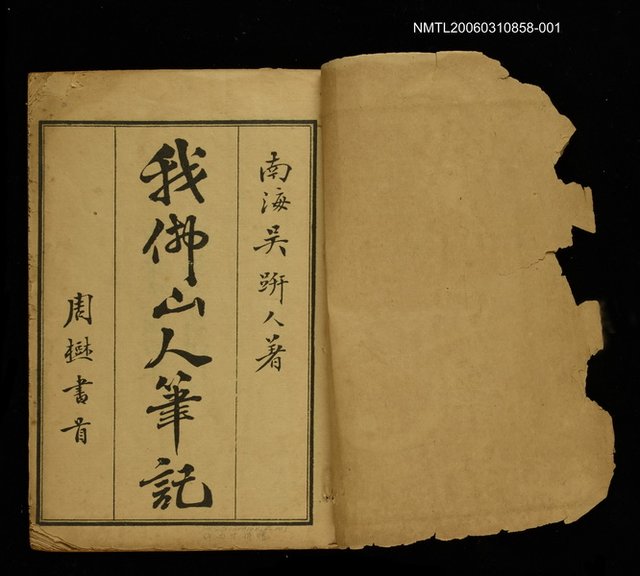 NMTL20060310858-001
南海吳趼人著
我佛山人筆記
周樾書首